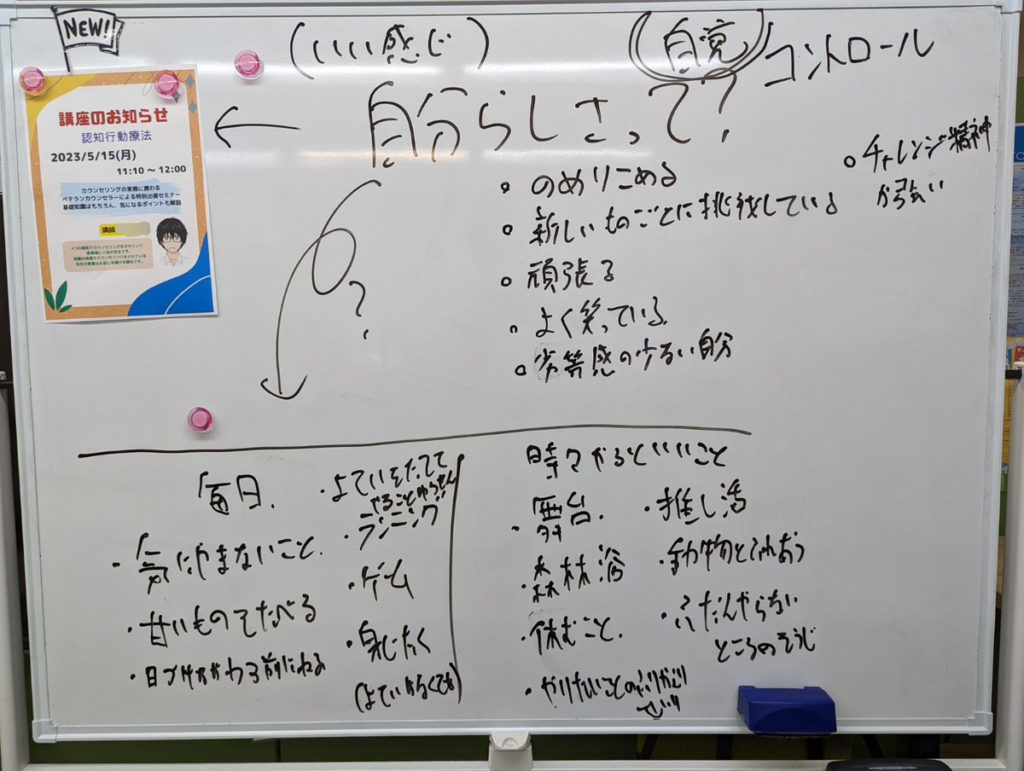 NEW!
講座のお知らせ
認知行動療法
2023/5/15(月)
11:10 ～ 12:00
カウンセリングの実務に携わる
ベテランカウンセラーによる特別出張セミナー
基礎知識はもちろん、気になるポイントも解説
講師
(いい感じ)
自覚
コントロール
自分らしさって?
?
。のめりこめる
。新しいものごとに挑戦している
。頑張る
。よく笑っている
。劣等感の少ない自分
。チャレンジ精神
が強い
毎日.
・気にやまないこと.
・甘いものをたべる
・日づけがかわる前にねる
・よていをたてて
やること
・ランニング
・ゲーム
・身じたく
(よていがなくても)
時々やるといいこと
・舞台.
・森林浴
・休むこと.
・やりたいことのふりかえり
せいり
・推し活
・動物とふれあう
・ふだんやらない
ところのそうじ